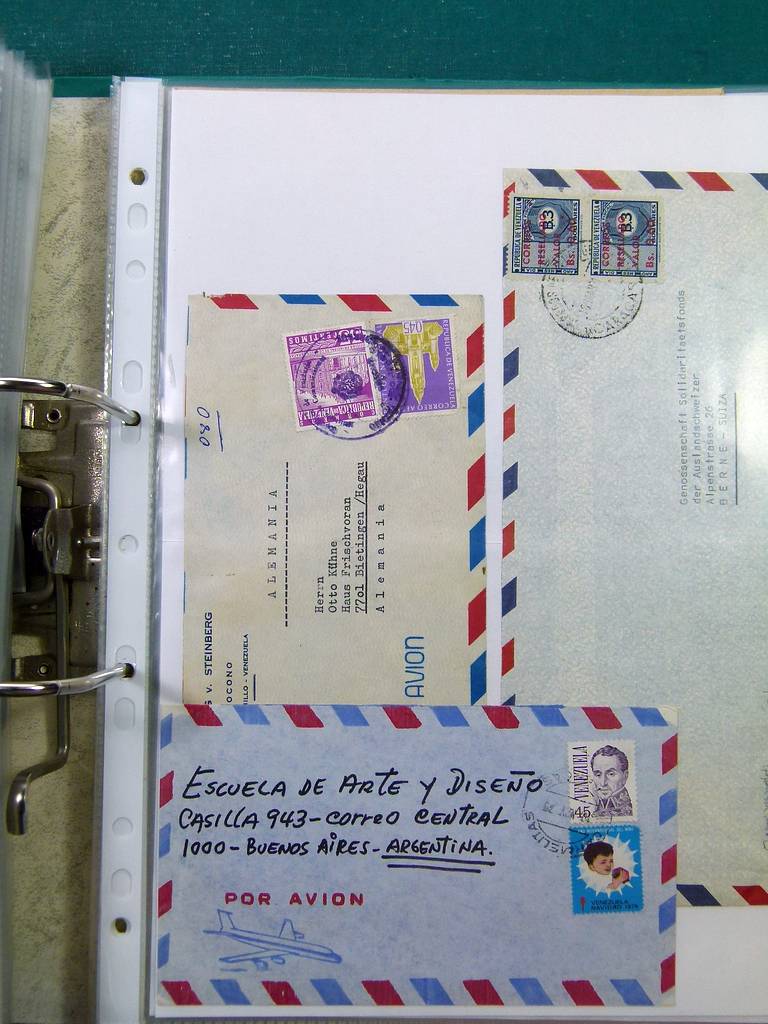 REPUBLICA DE VENEZUELA
CORREOS
RESELLADO
VALOR
Bs.
B.3
REPUBLICA DE VENEZUELA
CORREOS
RESELLADO
VALOR
Bs.
B.3
CARACAS
Genossenschaft Solidaritaetsfonds
der Auslandschweizer
Alpenstrasse 26
BERNE - SUIZA
CENTIMOS
REPUBLICA VENEZUELA
0,45
REPUBLICA DE VENEZUELA
CORREO
080
ALEMANIA
Herrn
Otto Kühne
Haus Frischvoran
7701 Bietingen /Hegau
Alemania
V. STEINBERG
OCONO
ILLO - VENEZUELA
AVION
ESCUELA DE ARTE Y DISEÑO
CASILLA 943 - CORREO CENTRAL
1000 - BUENOS AIRES - ARGENTINA.
POR AVION
VENEZUELA
45
VENEZUELA
NAVIDAD